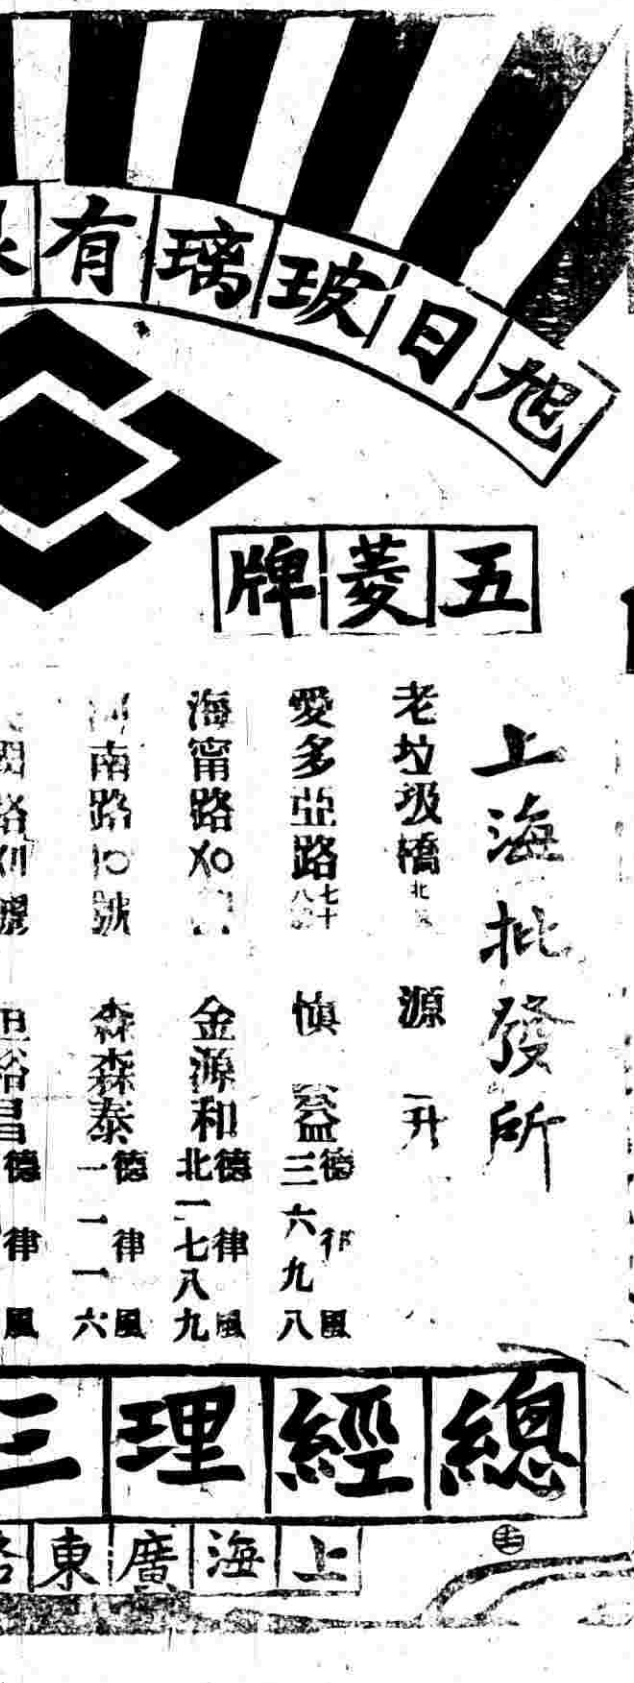 旭日玻璃有
五菱牌
上海批發所
老垃圾橋北 源升
愛多亞路七十八 慎益 德律風三六九八
海甯路〤〇 金源和 德律風北一七八九
河南路〡〇號 森森泰 德律風一一一六
路 裕昌 德律風
總經理三
上海廣東路